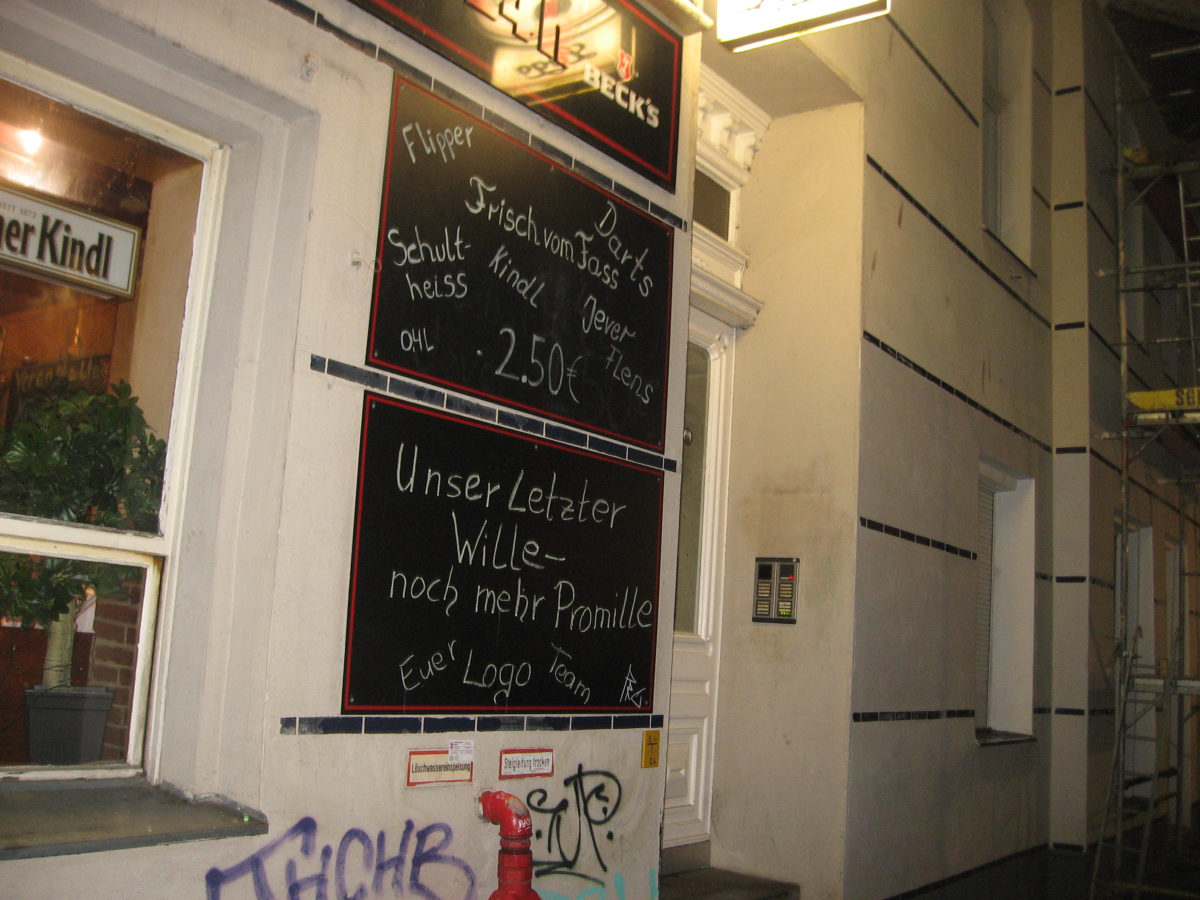 BECK'S
SEIT 1872
ner Kindl
Flipper
Darts
Frisch vom Fass
Schult-
heiss
Kindl
Jever
Flens
0,4L
2.50€
Unser Letzter
Wille-
noch mehr Promille
Euer Logo Team
Löschwassereinspeisung
Steigleitung trocken